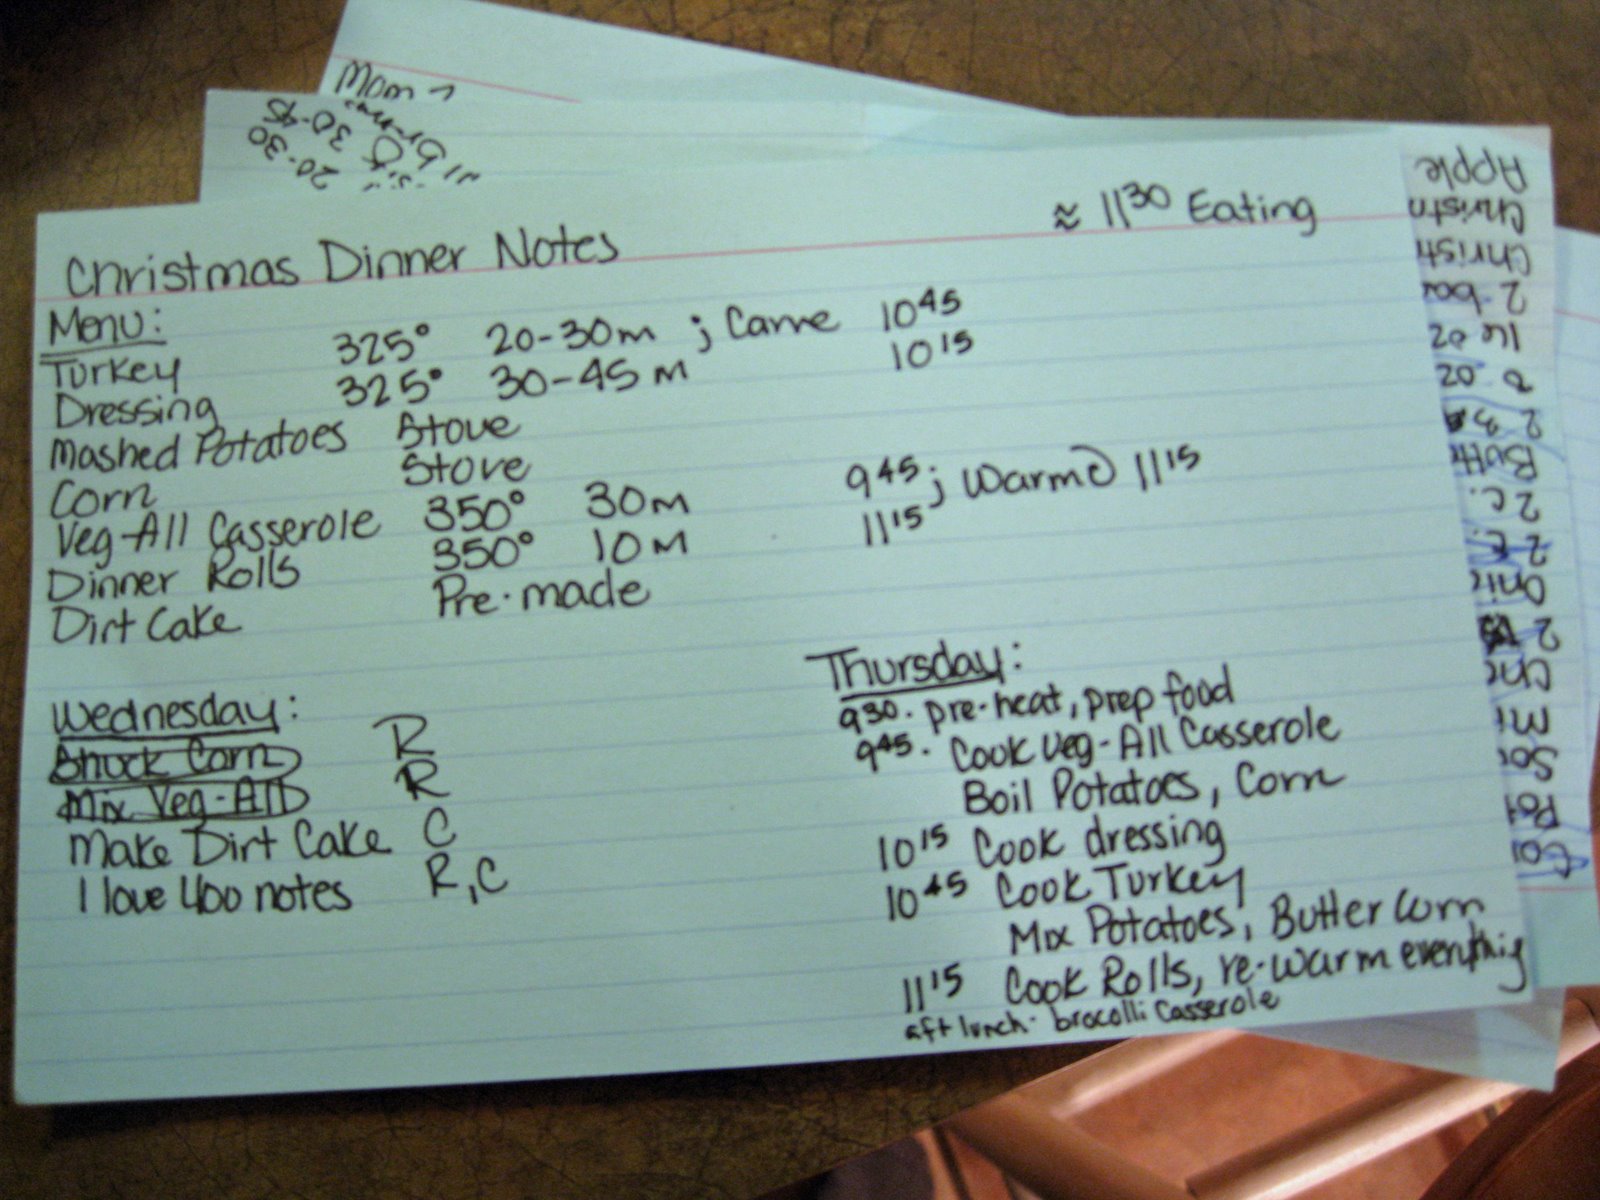 Mom
20-30
30-45
≈ 11³⁰ Eating
Christmas Dinner Notes
Menu:
Turkey 325° 20-30m ; Carve 10⁴⁵
Dressing 325° 30-45 m 10¹⁵
Mashed Potatoes Stove
Corn Stove
Veg-All Casserole 350° 30m 9⁴⁵; Warm@ 11¹⁵
Dinner Rolls 350° 10m 11¹⁵
Dirt Cake Pre-made
Wednesday:
Shuck Corn R
Mix Veg-All R
Make Dirt Cake C
I love 400 notes R,C
Thursday:
9³⁰. pre-heat, prep food
9⁴⁵. Cook Veg-All Casserole
Boil Potatoes, Corn
10¹⁵ Cook dressing
10⁴⁵ Cook Turkey
Mix Potatoes, Butter Corn
11¹⁵ Cook Rolls, re-warm everythig
aft lunch- brocolli Casserole
Apple
Christm
Christ
16 oz
oz
2 c.